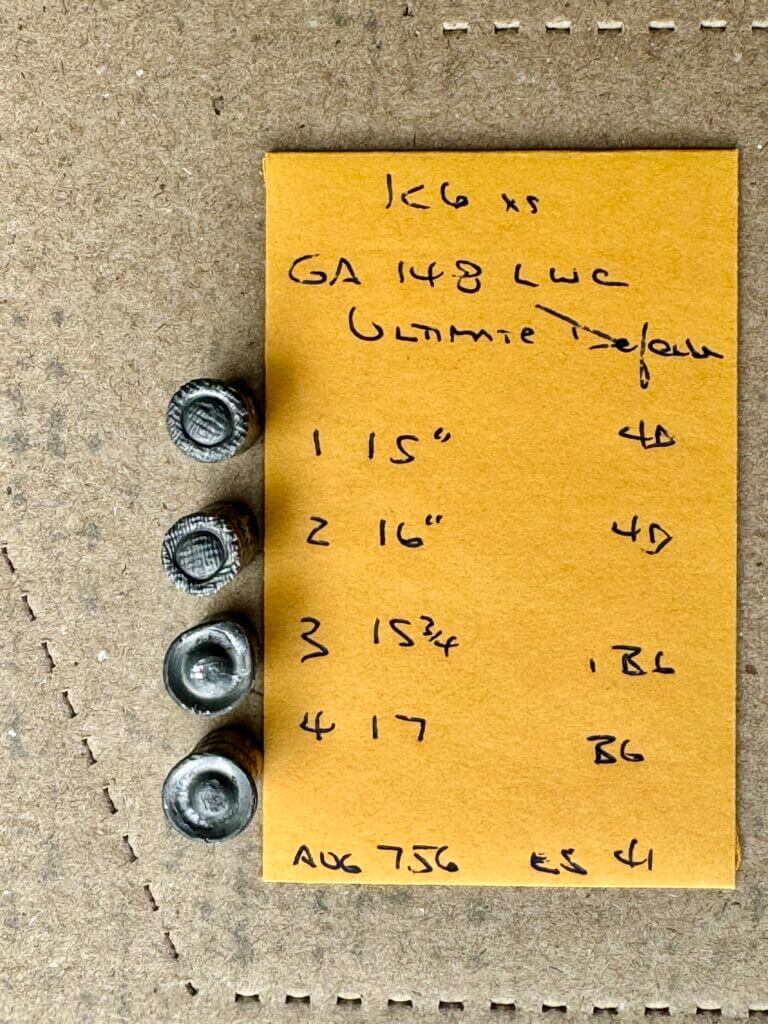 K6 xs
GA 148 LWC
ULTIMATE Defense
1 15" 4D
2 16" 4D
3 15 3/4 B6
4 17 B6
AVG 756 ES 41